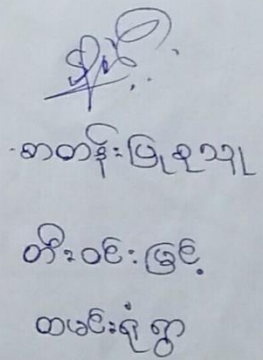 စာတန်းပြုစုသူ
တီးဝင်းမြင့်
ထမင်းရုံရွာ